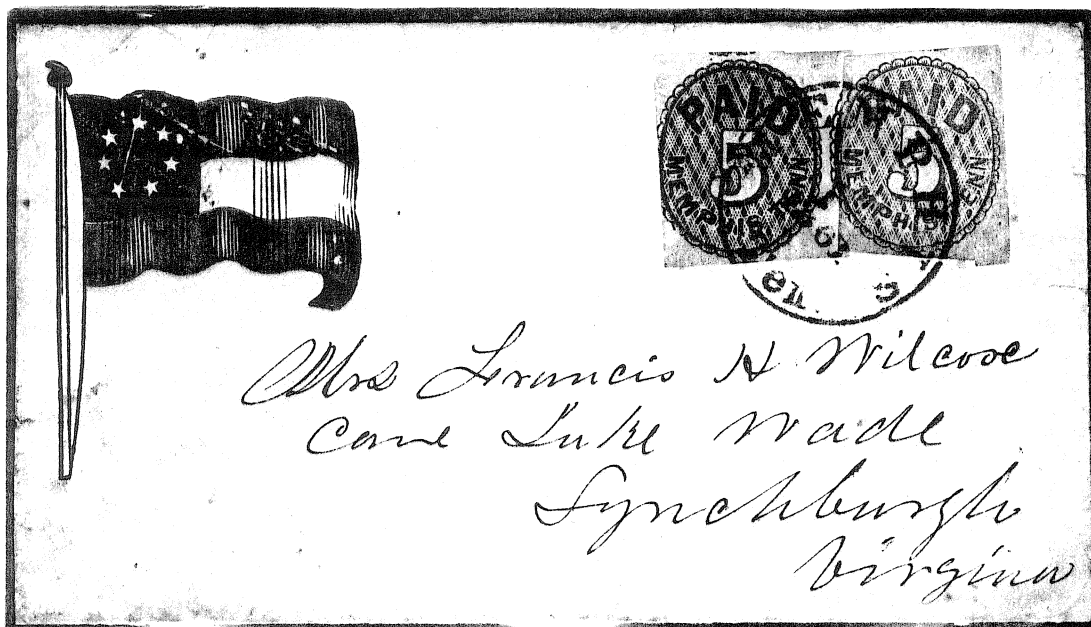 PAID
5
MEMPHIS TENN
PAID
5
MEMPHIS TENN
Mrs Francis H Wilcox
Care Luke Wade
Lynchburgh
Virginia